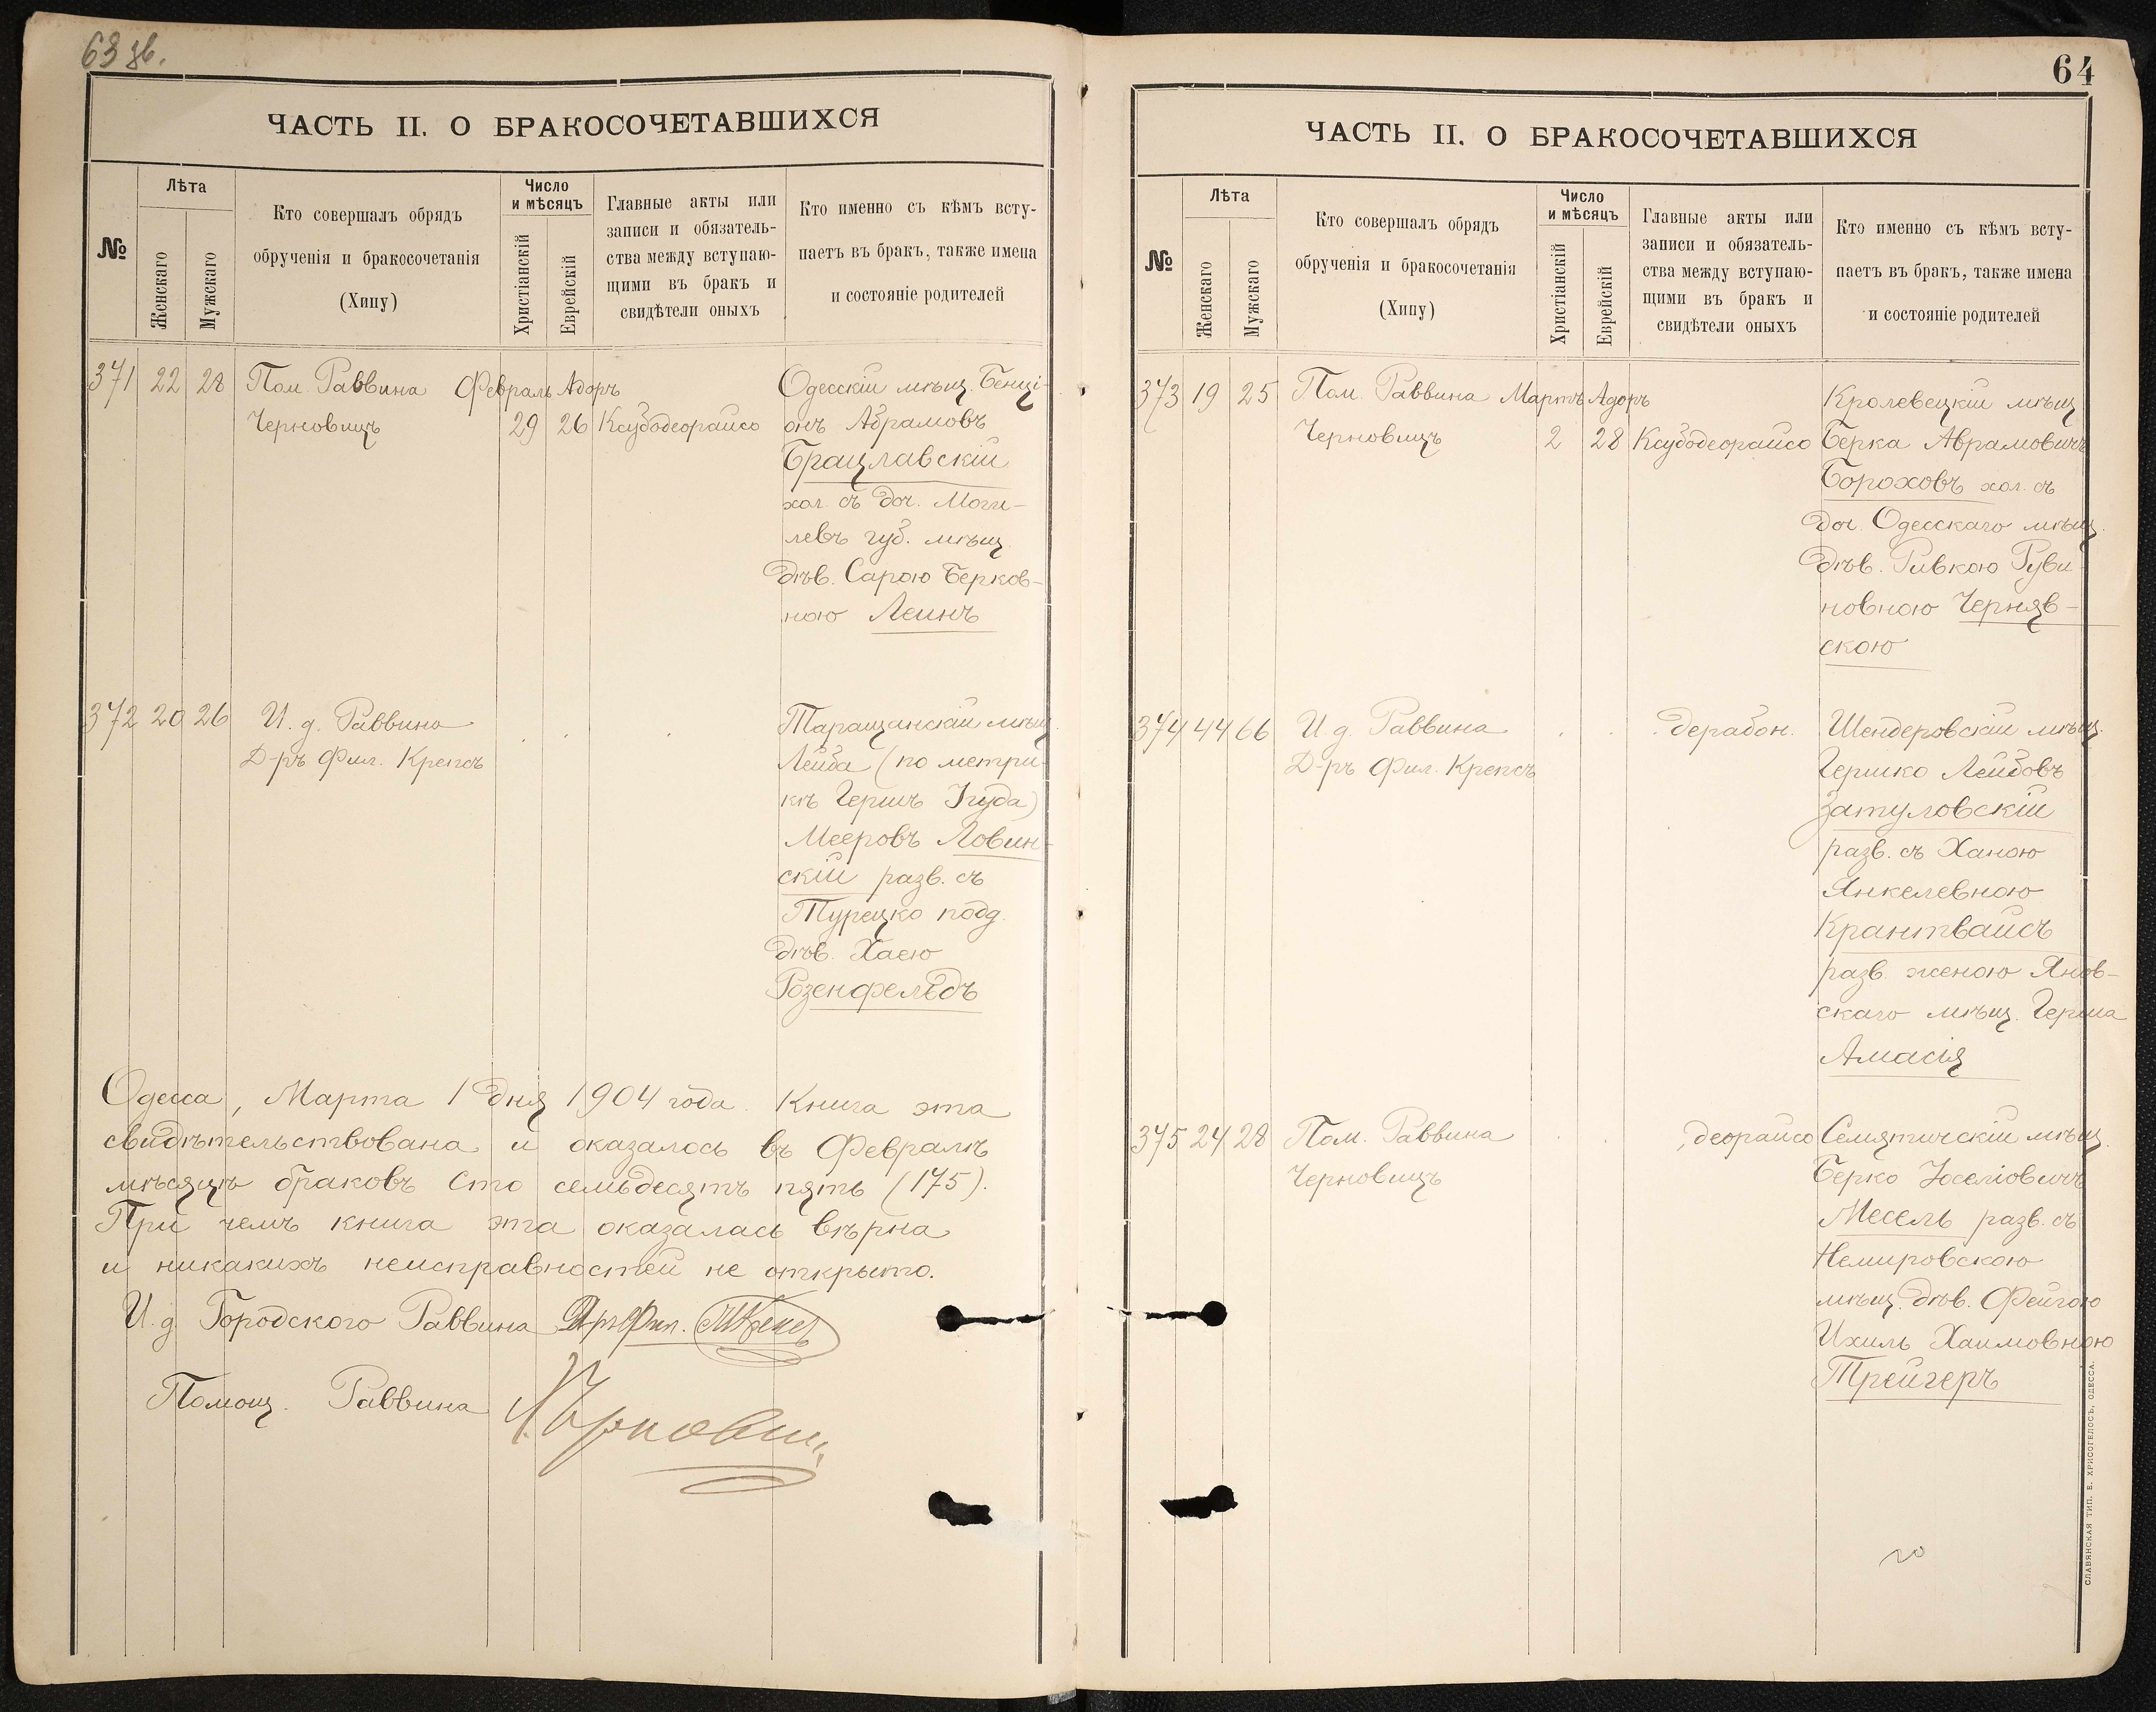 63 зв.
ЧАСТЬ II. О БРАКОСОЧЕТАВШИХСЯ
№
Лѣта
Женскаго
Мужскаго
Кто совершалъ обрядъ
обрученія и бракосочетанія
(Хипу)
Число
и мѣсяцъ
Христіанскій
Еврейскій
Главные акты или
записи и обязатель-
ства между вступаю-
щими въ бракъ и
свидѣтели оныхъ
Кто именно съ кѣмъ всту-
паетъ въ бракъ, также имена
и состояніе родителей
371 22 28 Пом. Раввина Февраль Адоръ Одесскій мѣщ. Бенці-
Черновицъ 29 26 Ксубодеорайсо онъ Абрамовъ
Брацлавскій
хол. съ доч. Моги-
левъ губ. мѣщ.
дѣв. Сарою Берков-
ною Леинъ
372 20 26 И. д. Раввина Таращанскій мѣщ.
Д-ръ Фил. Крепсъ Лейба (по метри-
кѣ Гершъ Іуда)
Мееровъ Ловин-
скій разв. съ
Турецко подд.
дѣв. Хаею
Розенфельдъ
Одесса, Марта 1 дня 1904 года. Книга эта
свидѣтельствована и оказалось въ Февралѣ
мѣсяцѣ браковъ сто семьдесятъ пять (175).
При чемъ книга эта оказалась вѣрна
и никакихъ неисправностей не открыто.
И. д. Городского Раввина Д-ръ Фил. Крепсъ
Помощ. Раввина Черновицъ
64
ЧАСТЬ II. О БРАКОСОЧЕТАВШИХСЯ
№
Лѣта
Женскаго
Мужскаго
Кто совершалъ обрядъ
обрученія и бракосочетанія
(Хипу)
Число
и мѣсяцъ
Христіанскій
Еврейскій
Главные акты или
записи и обязатель-
ства между вступаю-
щими въ бракъ и
свидѣтели оныхъ
Кто именно съ кѣмъ всту-
паетъ въ бракъ, также имена
и состояніе родителей
373 19 25 Пом. Раввина Мартъ Адоръ Кролевецкій мѣщ.
Черновицъ 2 28 Ксубодеорайсо Берка Аврамовичъ
Бороховъ хол. съ
доч. Одесскаго мѣщ.
дѣв. Ривкою Руви-
новною Черняв-
скою
374 44 66 И. д. Раввина дерабон. Шендеровскій мѣщ.
Д-ръ Фил. Крепсъ Гершко Лейбовъ
Затуловскій
разв. съ Ханою
Янкелевною
Крантвайсъ
разв. женою Янов-
скаго мѣщ. Герша
Амасія
375 24 28 Пом. Раввина деорайсо Семятичскій мѣщ.
Черновицъ Берко Іоселіовичъ
Месель разв. съ
Немировскою
мѣщ. дѣв. Фейгою
Ихиль Хаимовною
Трейгеръ
СЛАВЯНСКАЯ ТИП. Е. ХРИСОГЕЛОСЪ, ОДЕССА.